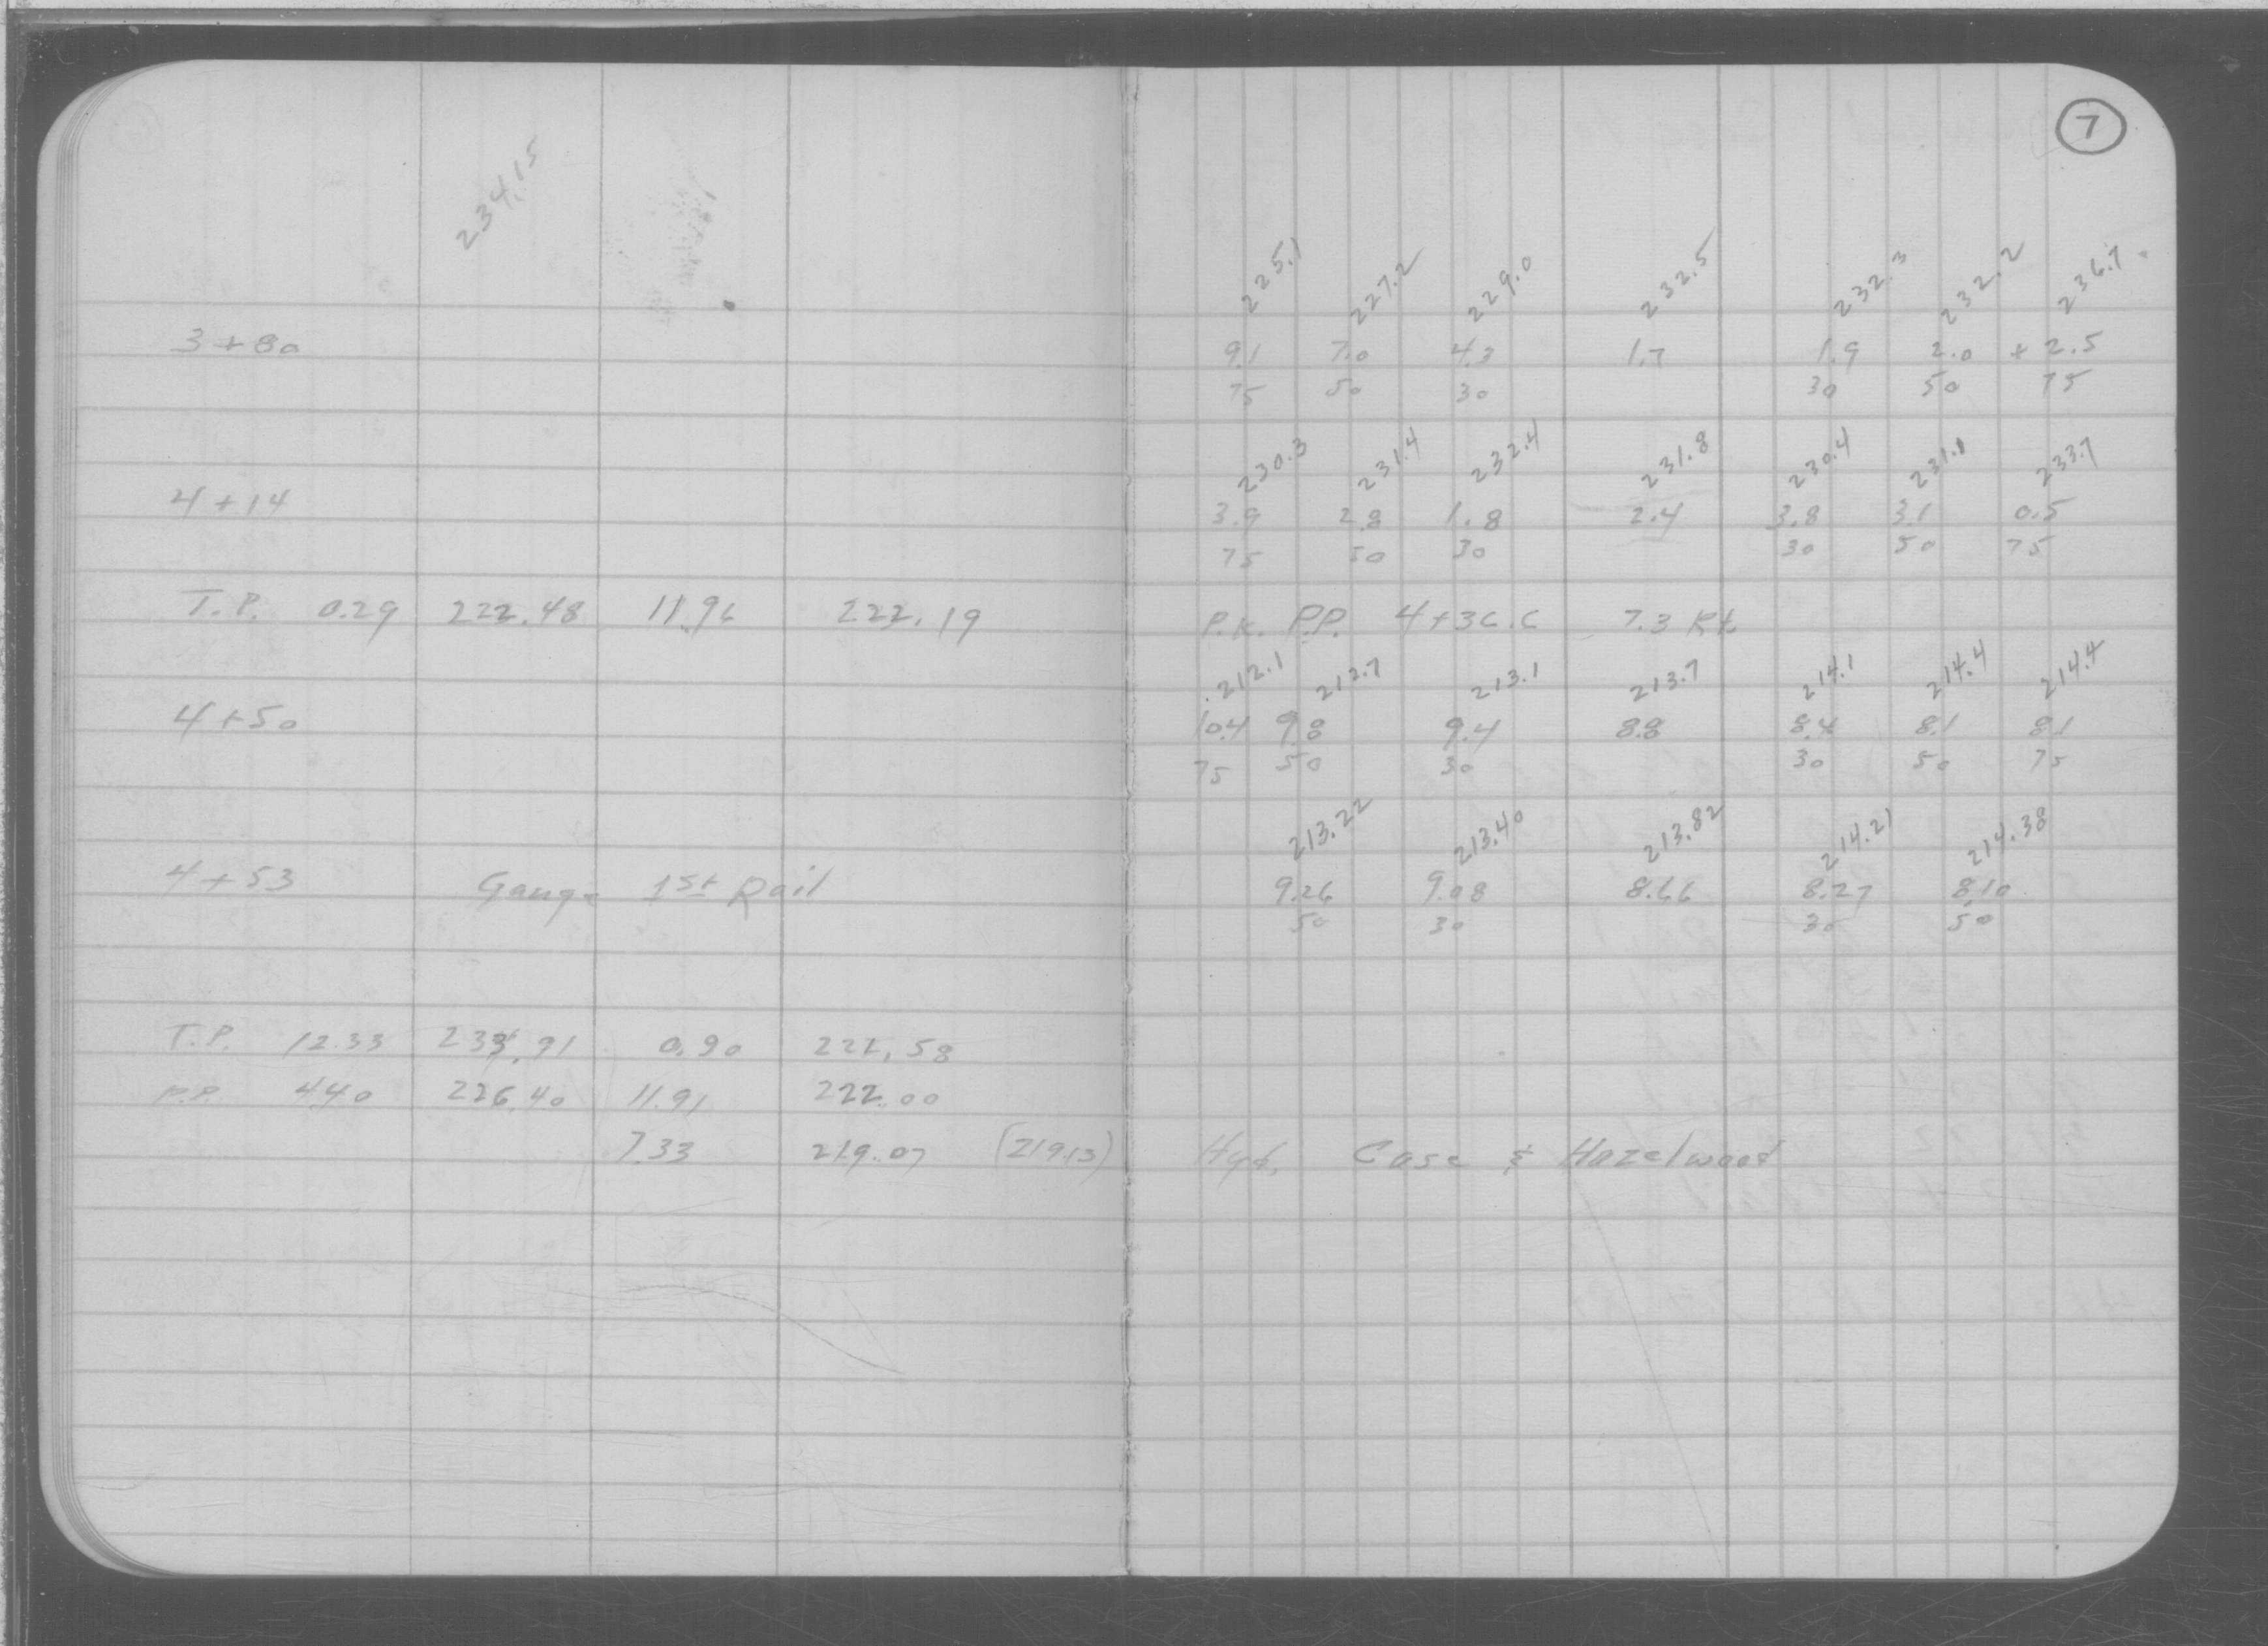 7
234.15
225.1 227.2 229.0 232.5 232.3 232.2 236.7
3+80 9.1 7.0 4.3 1.7 1.9 2.0 +2.5
75 50 30 30 50 75
230.3 231.4 232.4 231.8 230.4 231.1 233.7
4+14 3.9 2.8 1.8 2.4 3.8 3.1 0.5
75 50 30 30 50 75
T.P. 0.29 222.48 11.96 222.19 P.K. P.P. 4+36.6 7.3 Rt.
212.1 212.7 213.1 213.7 214.1 214.4 214.4
4+50 10.4 9.8 9.4 8.8 8.4 8.1 8.1
75 50 30 30 50 75
213.22 213.40 213.82 214.21 214.38
4+53 Gauge 1st Rail 9.26 9.08 8.66 8.27 8.10
50 30 30 50
T.P. 12.33 233.91 0.90 221.58
P.P. 4.40 226.40 11.91 222.00
7.33 219.07 (219.13) Hyd. Case & Hazelwood